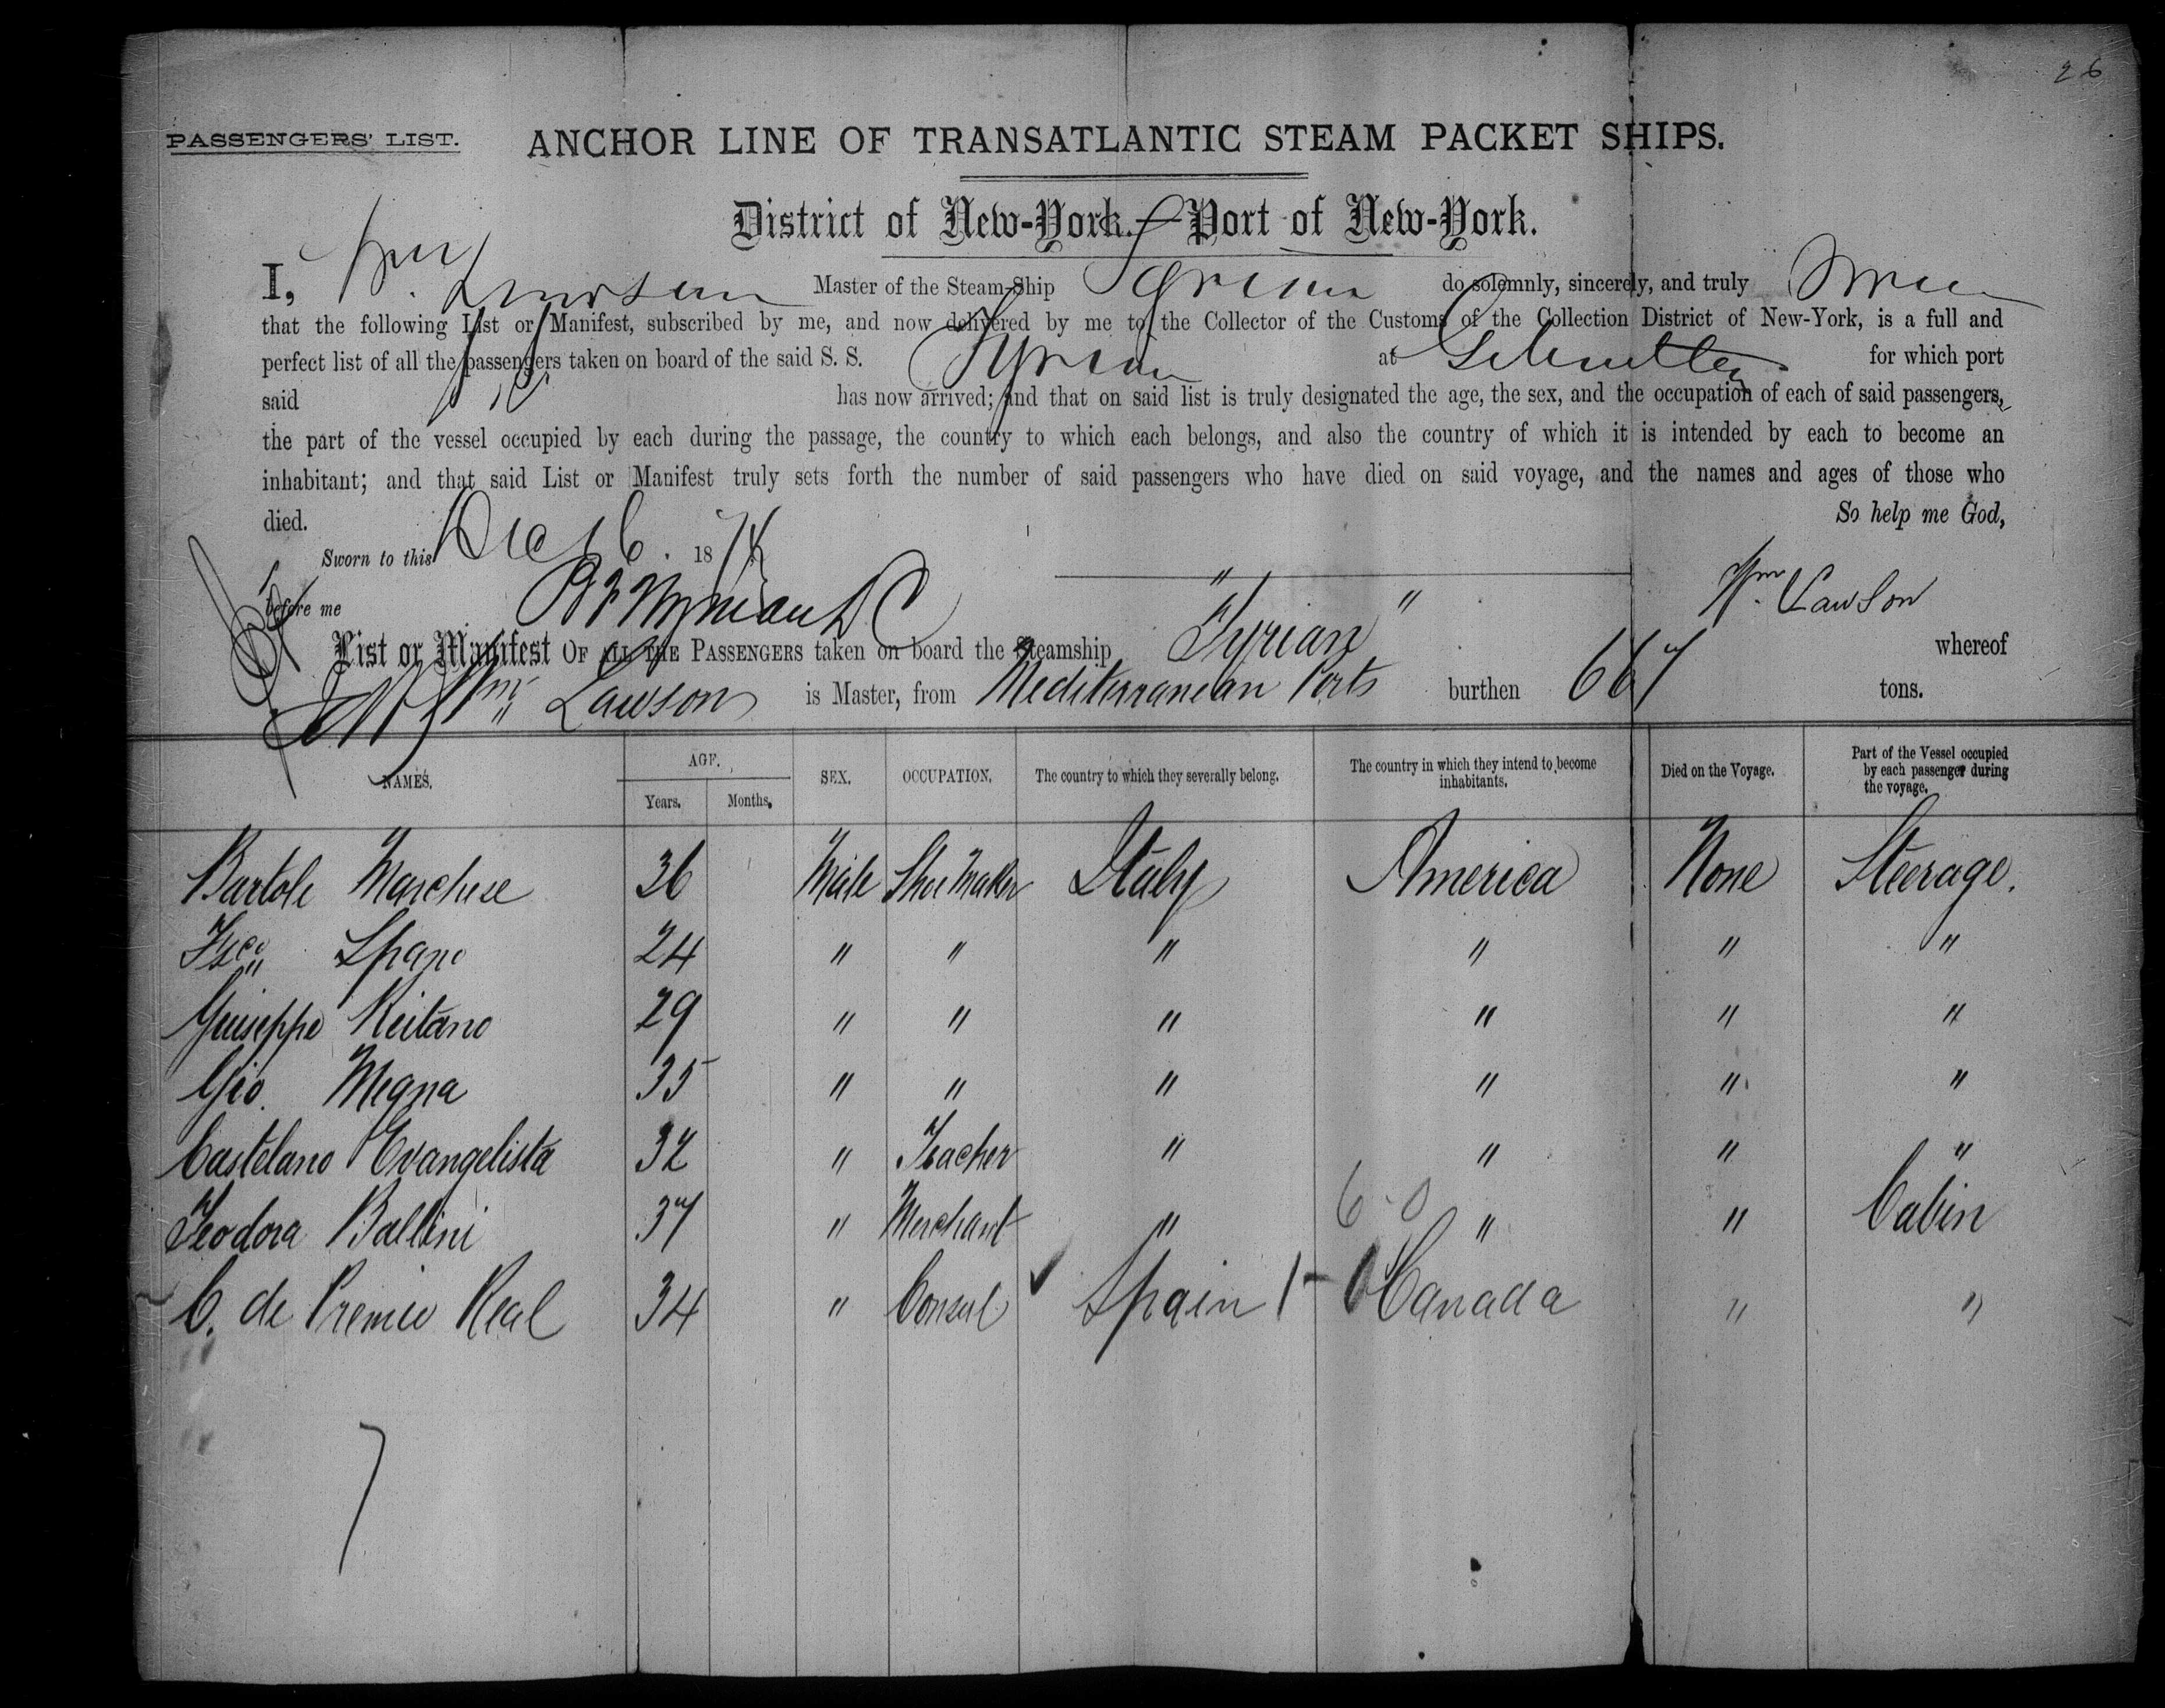 26
PASSENGERS' LIST. ANCHOR LINE OF TRANSATLANTIC STEAM PACKET SHIPS.
District of New-York.—Port of New-York.
I, Wm Lawson Master of the Steam-Ship Tyrian do solemnly, sincerely, and truly Swear
that the following List or Manifest, subscribed by me, and now delivered by me to the Collector of the Customs of the Collection District of New-York, is a full and
perfect list of all the passengers taken on board of the said S. S. Tyrian at Gibraltar for which port
said has now arrived; and that on said list is truly designated the age, the sex, and the occupation of each of said passengers,
the part of the vessel occupied by each during the passage, the country to which each belongs, and also the country of which it is intended by each to become an
inhabitant; and that said List or Manifest truly sets forth the number of said passengers who have died on said voyage, and the names and ages of those who
died. So help me God,
Sworn to this Dec 16. 1874
before me Wm. Lawson
List or Manifest OF ALL THE PASSENGERS taken on board the Steamship "Tyrian" whereof
Wm Lawson is Master, from Mediterranean Ports burthen 667 tons.
NAMES. AGE. Years. Months. SEX. OCCUPATION. The country to which they severally belong. The country in which they intend to become inhabitants. Died on the Voyage. Part of the Vessel occupied by each passenger during the voyage.
Bartole Marchese 36 Male Shoe Maker Italy America None Steerage.
Fsco Spano 24 " " " " " "
Giuseppe Reitano 29 " " " " " "
Gio. Megna 35 " " " " " "
Castelano Evangelista 32 " Teacher " " " "
Teodora Ballini 37 " Merchant " 6-0 " " Cabin
C. de Premio Real 34 " Consul ✓ Spain 1-0 Canada " "
7